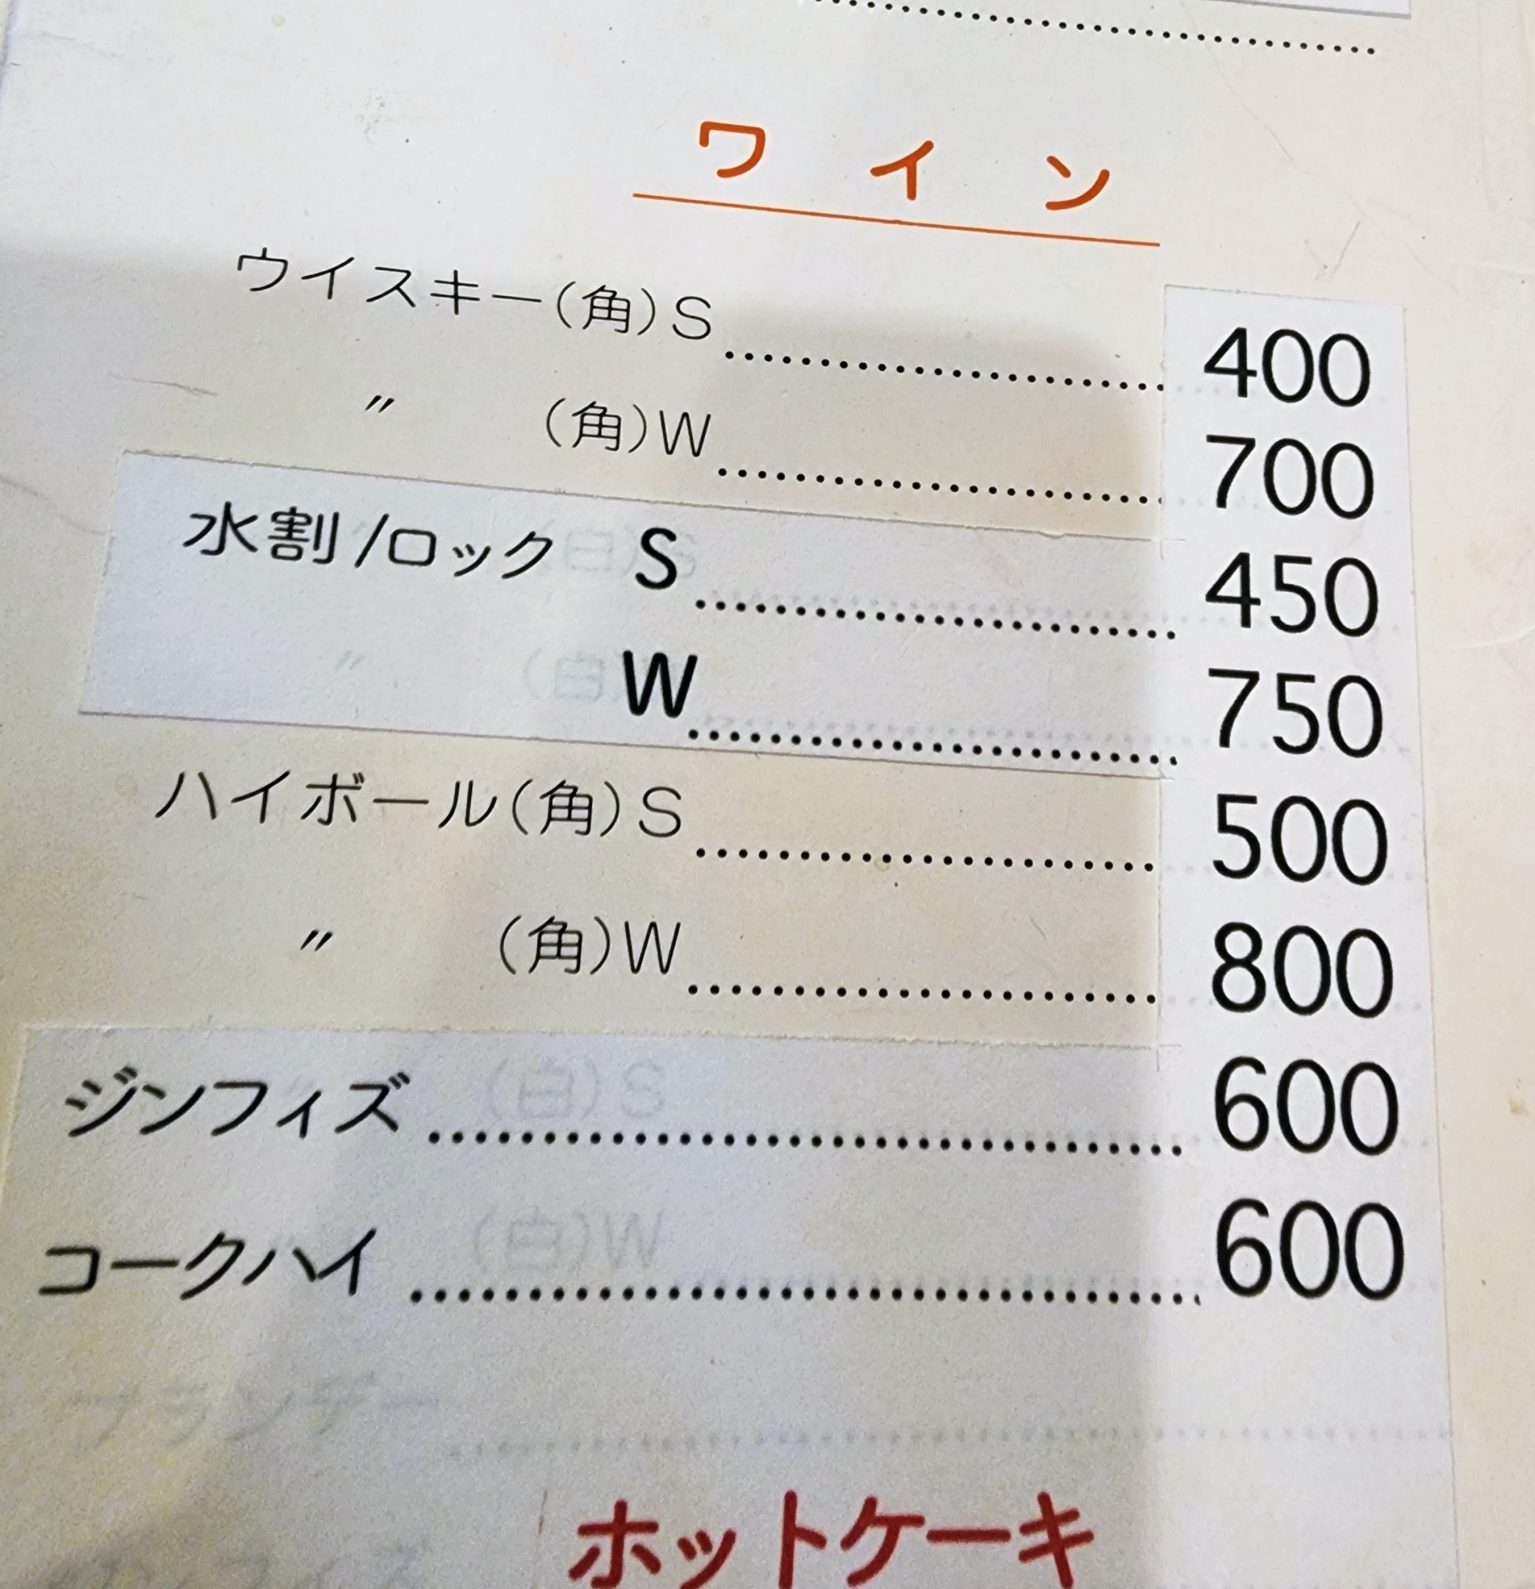 ワイン
ウイスキー(角)S 400
〃 (角)W 700
水割/ロック S 450
W 750
ハイボール(角)S 500
〃 (角)W 800
ジンフィズ 600
コークハイ 600
ホットケーキ